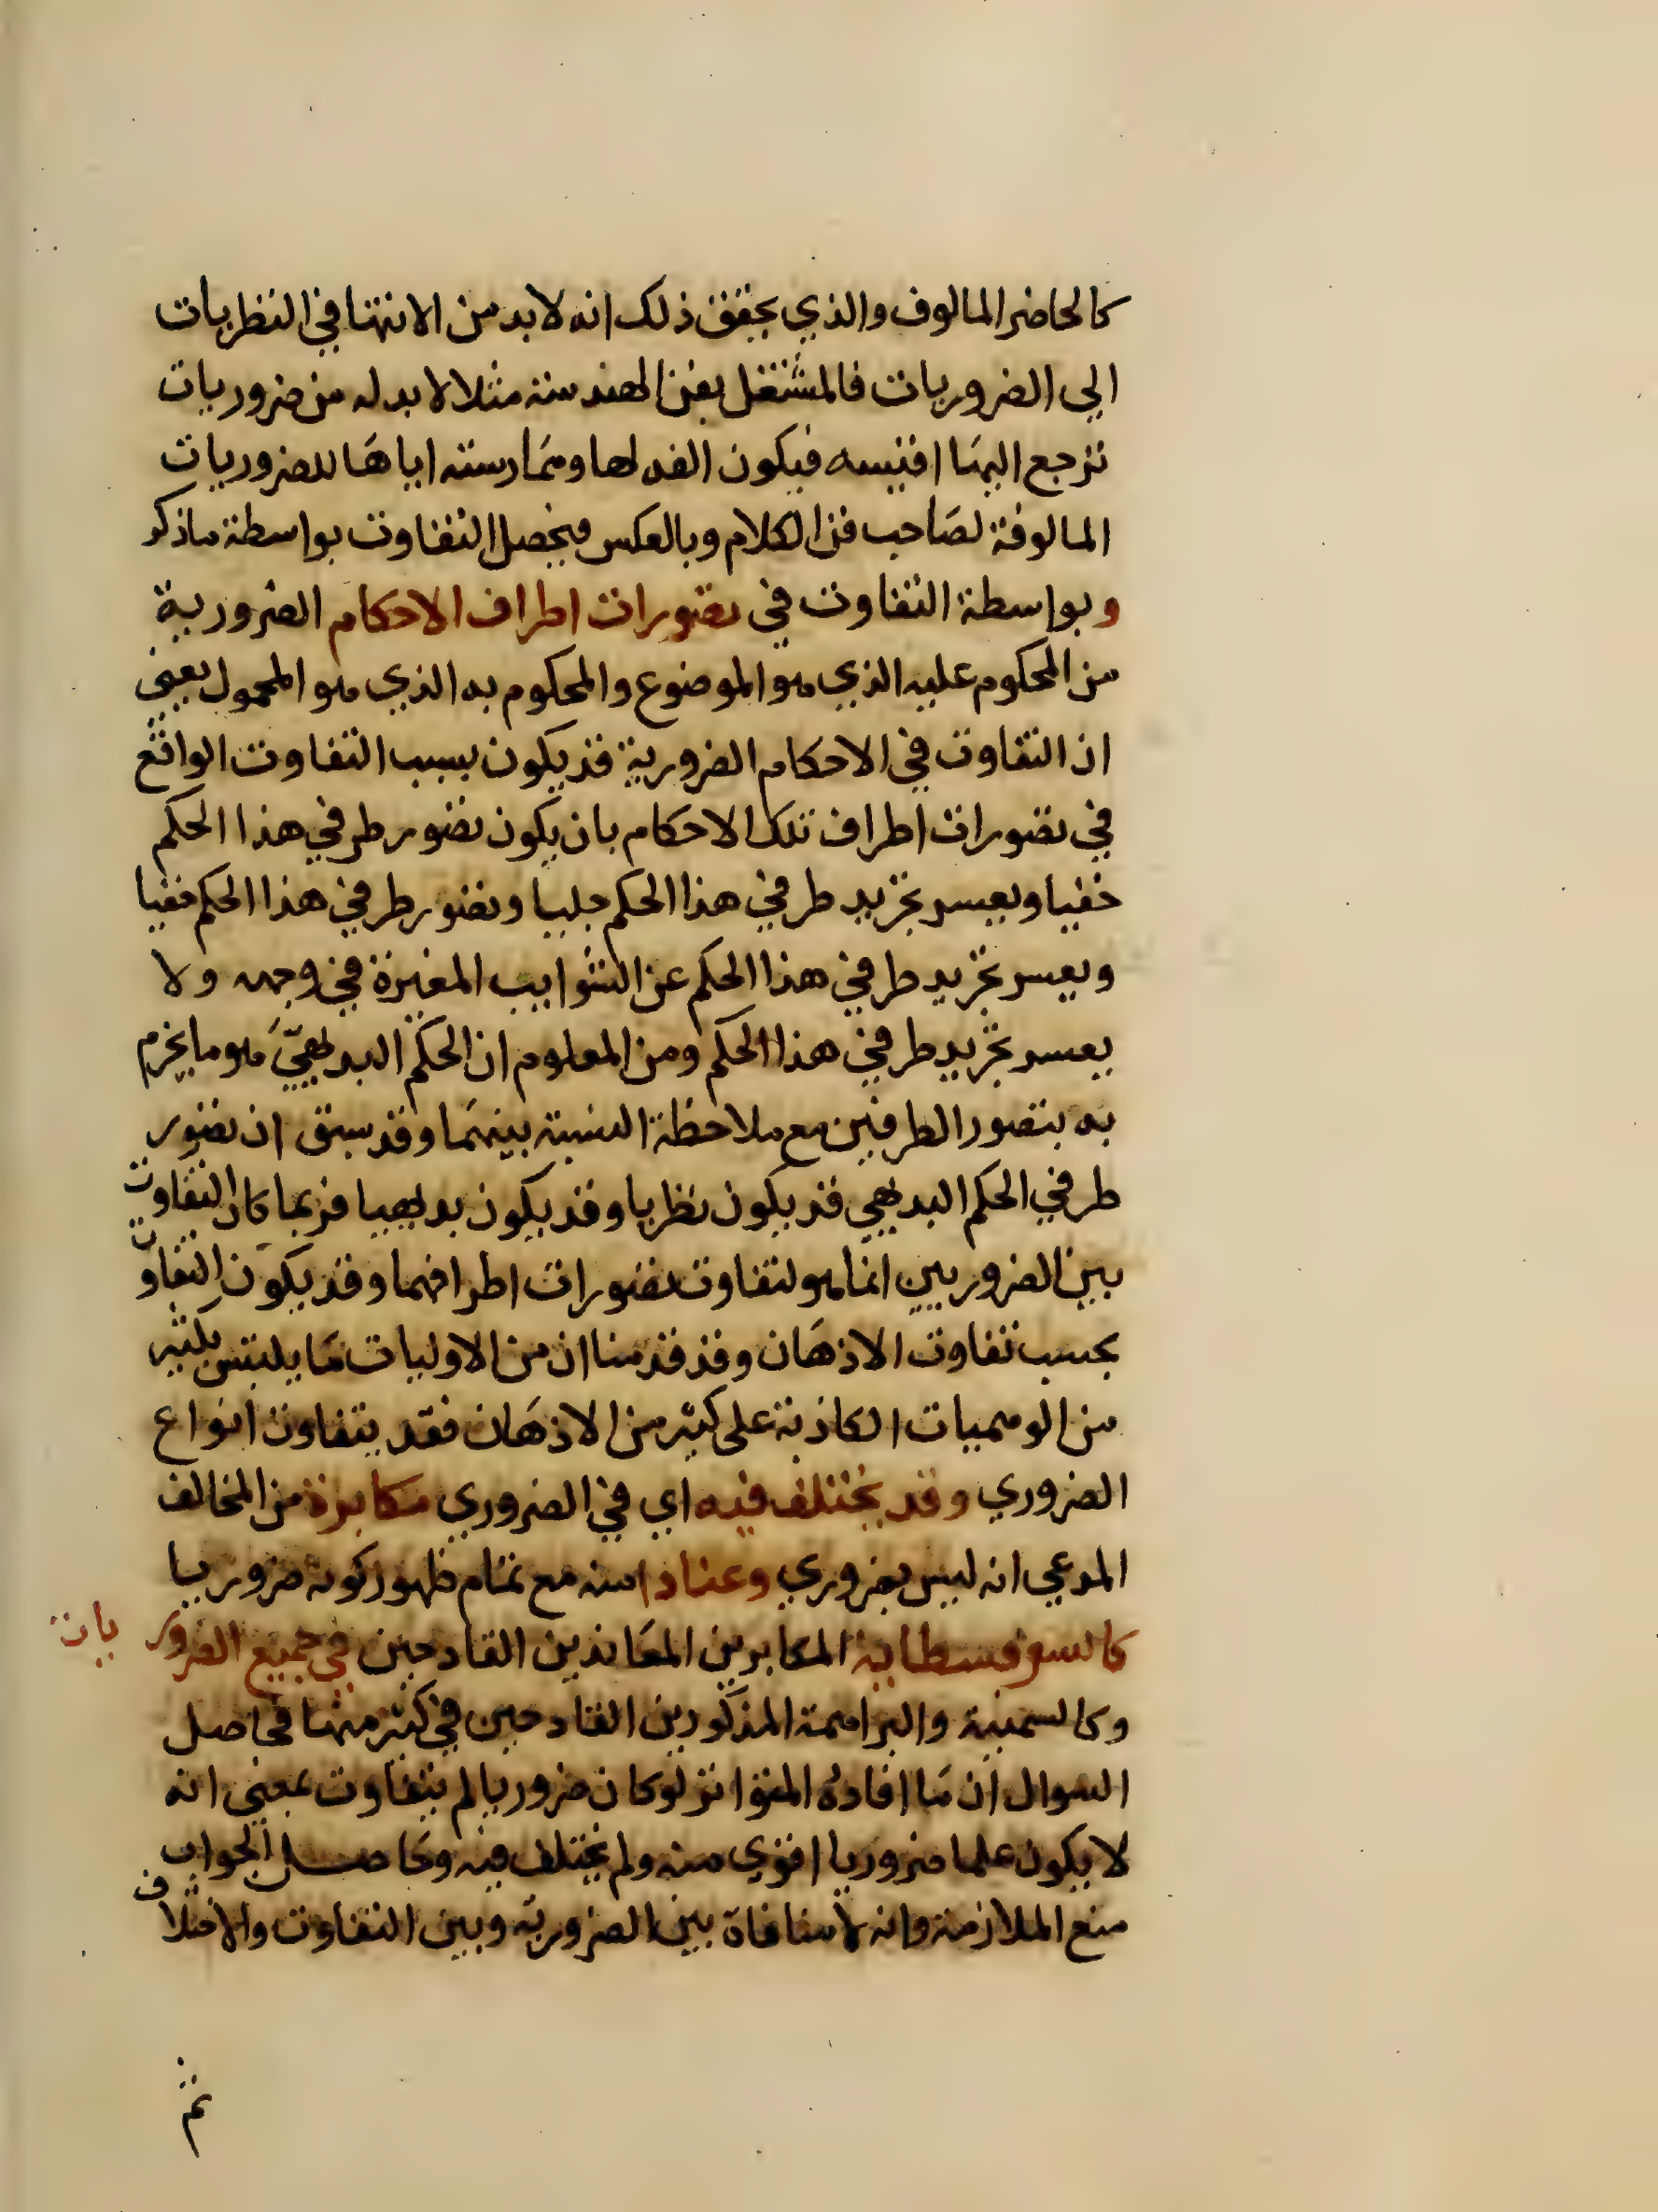 كالحاضر المالوف والذي يحقق ذلك انه لابد من الانتها في النظريات
الي الضروريات فالمشتغل بفن الهندسة مثلا لا بد له من ضروريات
ترجع اليها اقيسه فيكون الفه لها وممارسته اياها للضروريات
المالوفة لصاحب فن الكلام وبالعكس فيحصل التفاوت بواسطة ماذكر
وبواسطة التفاوت في تصورات اطراف الاحكام الضرورية
من المحكوم عليه الذي هو الموضوع والمحكوم به الذي هو المحمول يعني
ان التفاوت في الاحكام الضرورية قد يكون بسبب التفاوت الواقع
في تصورات اطراف تلك الاحكام بان يكون تصور طرفي هذا الحكم
خفيا ويعسر تجريد طرفي هذا الحكم جليا وتصور طرفي هذا الحكم خفيا
ويعسر تجريد طرفي هذا الحكم عن الشوايب المغيرة في وجهه ولا
يعسر تجريد طرفي هذا الحكم ومن المعلوم ان الحكم البديهيّ هو ما يجزم
به بتصور الطرفين مع ملاحظة النسبة بينهما وقد سبق ان تصور
طرفي الحكم البديهي قد يكون نظريا وقد يكون بديهيا فربما كان التفاوت
بين الضروريين انما هو لتفاوت تصورات اطرافهما وقد يكون التفاوت
بحسب تفاوت الاذهان وقد قدمنا ان من الاوليات ما يلتبس بكثير
من الوهميات الكاذبة على كثير من الاذهان فقد يتفاوت انواع
الضروري وقد يختلف فيه اي في الضروري مكابرة من المخالف
المدعي انه ليس بضروري وعنادا منه مع تمام ظهور كونه ضروريا
كالسوفسطاية المكابرين المعاندين القادحين في جميع الضروريات
وكالسمنية والبراهمة المذكورين القادحين في كثير منها فحاصل
السوال ان ما افاده المتواتر لو كان ضروريا لم يتفاوت بمعني انه
لا يكون علما ضروريا اقوي منه ولم يختلف فيه وحاصل الجواب
منع الملازمة وانه لا منافاة بين الضرورية وبين التفاوت والاختلاف
ثم